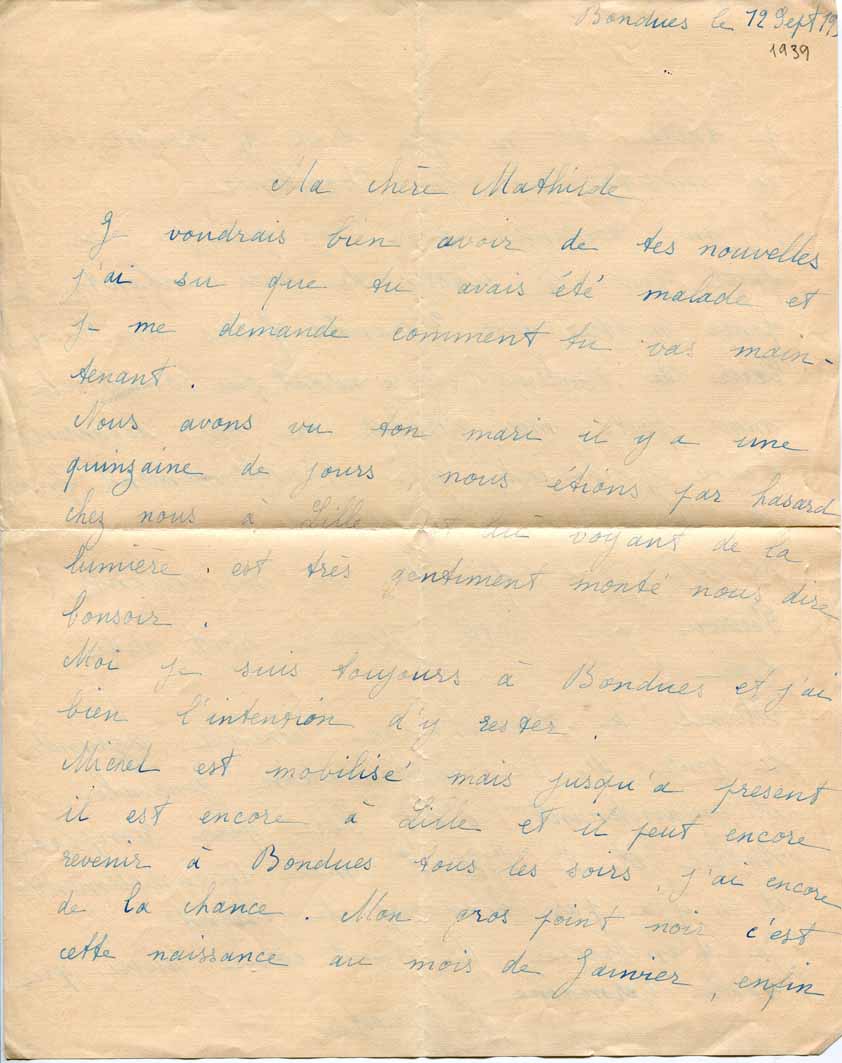 Bondues le 12 Sept 19
1939
Ma chère Mathilde
Je voudrais bien avoir de tes nouvelles
j'ai su que tu avais été malade et
je me demande comment tu vas main-
tenant.
Nous avons vu ton mari il y a une
quinzaine de jours, nous étions par hasard
chez nous à Lille et voyant de la
lumière. est très gentiment monté nous dire
bonsoir.
Moi je suis toujours à Bondues et j'ai
bien l'intention d'y rester.
Michel est mobilisé mais jusqu'a présent
il est encore à Lille et il peut encore
revenir à Bondues tous les soirs, j'ai encore
de la chance. Mon gros point noir c'est
cette naissance au mois de Janvier, enfin